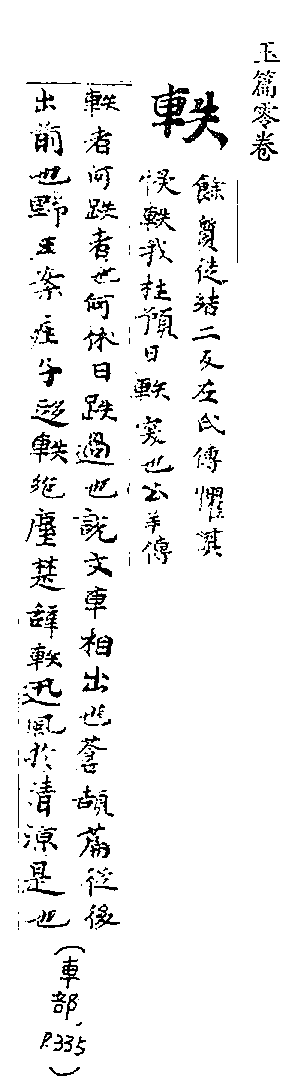 玉篇零卷
軼
餘質徒結二反左氏傳懼其
侵軼我杜預曰軼突也公羊傳
軼者何跌者也何休曰跌過也說文車相出也蒼頡篇從後
出前也野王案庄子超軼絕塵楚辭軼迅風於清源是也
(車部, P.335)